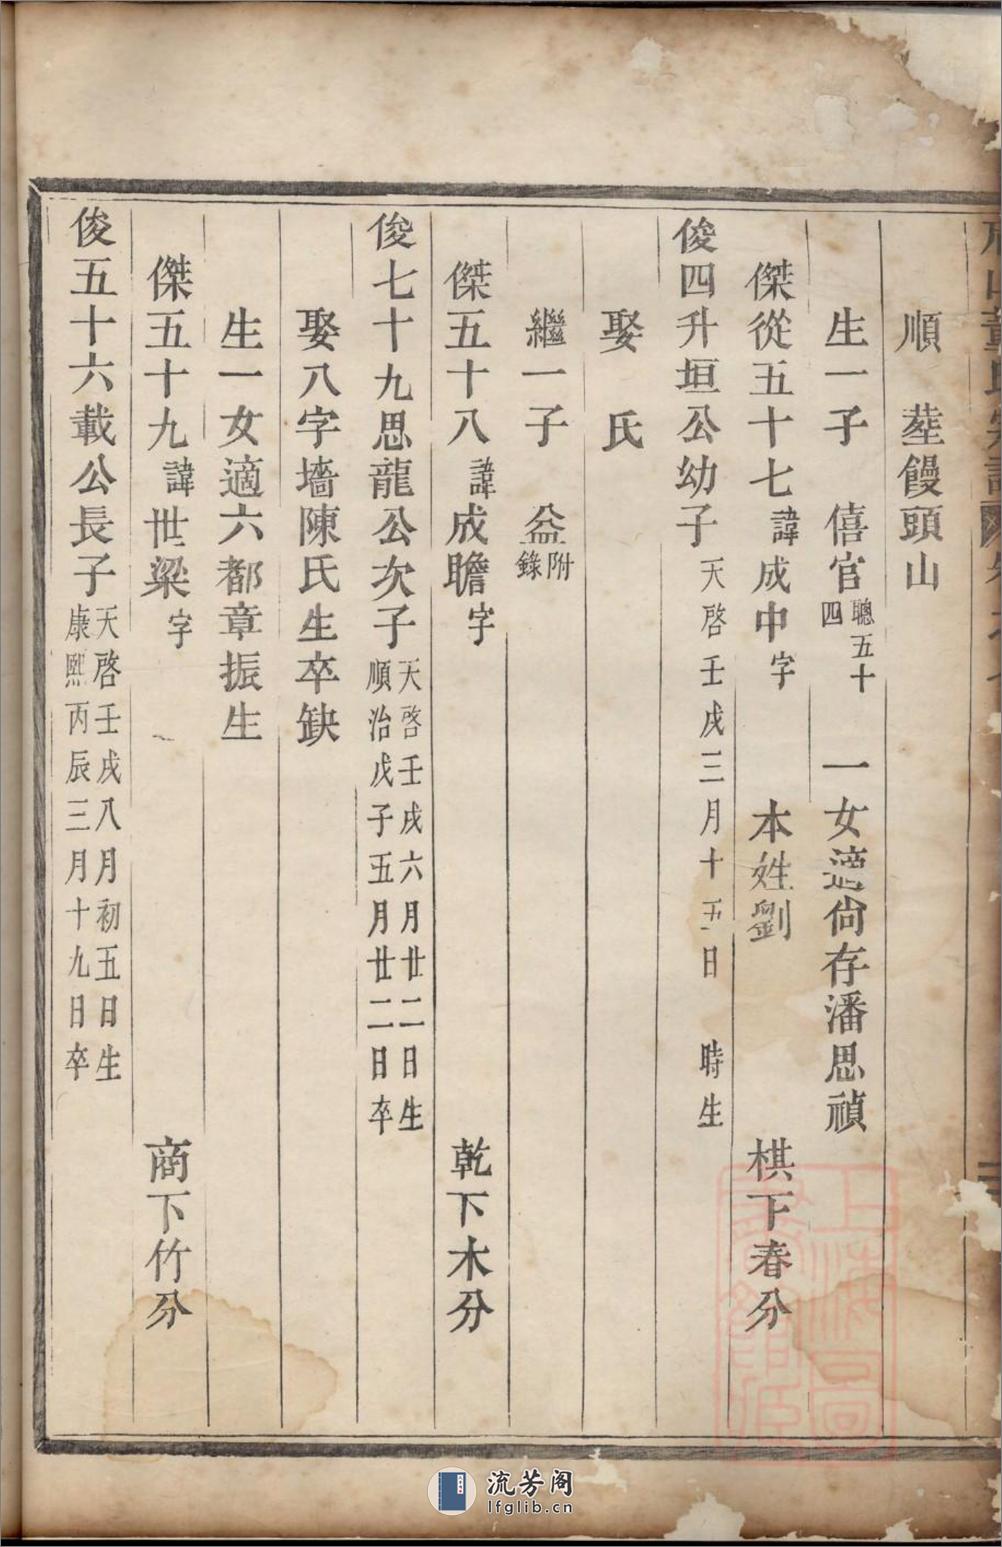 順　塟饅頭山
生一子　僖官聰五十四　一女適尙存潘思禎
傑從五十七諱成中字　本姓劉　棋下春分
俊四升垣公幼子天啓壬戌三月十五日　時生
娶　氏
繼一子　㒶附錄
傑五十八諱成瞻字　乾下木分
俊七十九思龍公次子天啓壬戌六月廿二日生順治戊子五月廿二日卒
娶八字墻陳氏生卒缺
生一女適六都章振生
傑五十九諱世梁字　商下竹分
俊五十六載公長子天啓壬戌八月初五日生康熙丙辰三月十九日卒
流芳阁
lfglib.cn